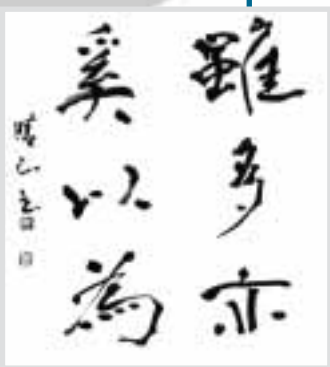 雖多亦
奚以為